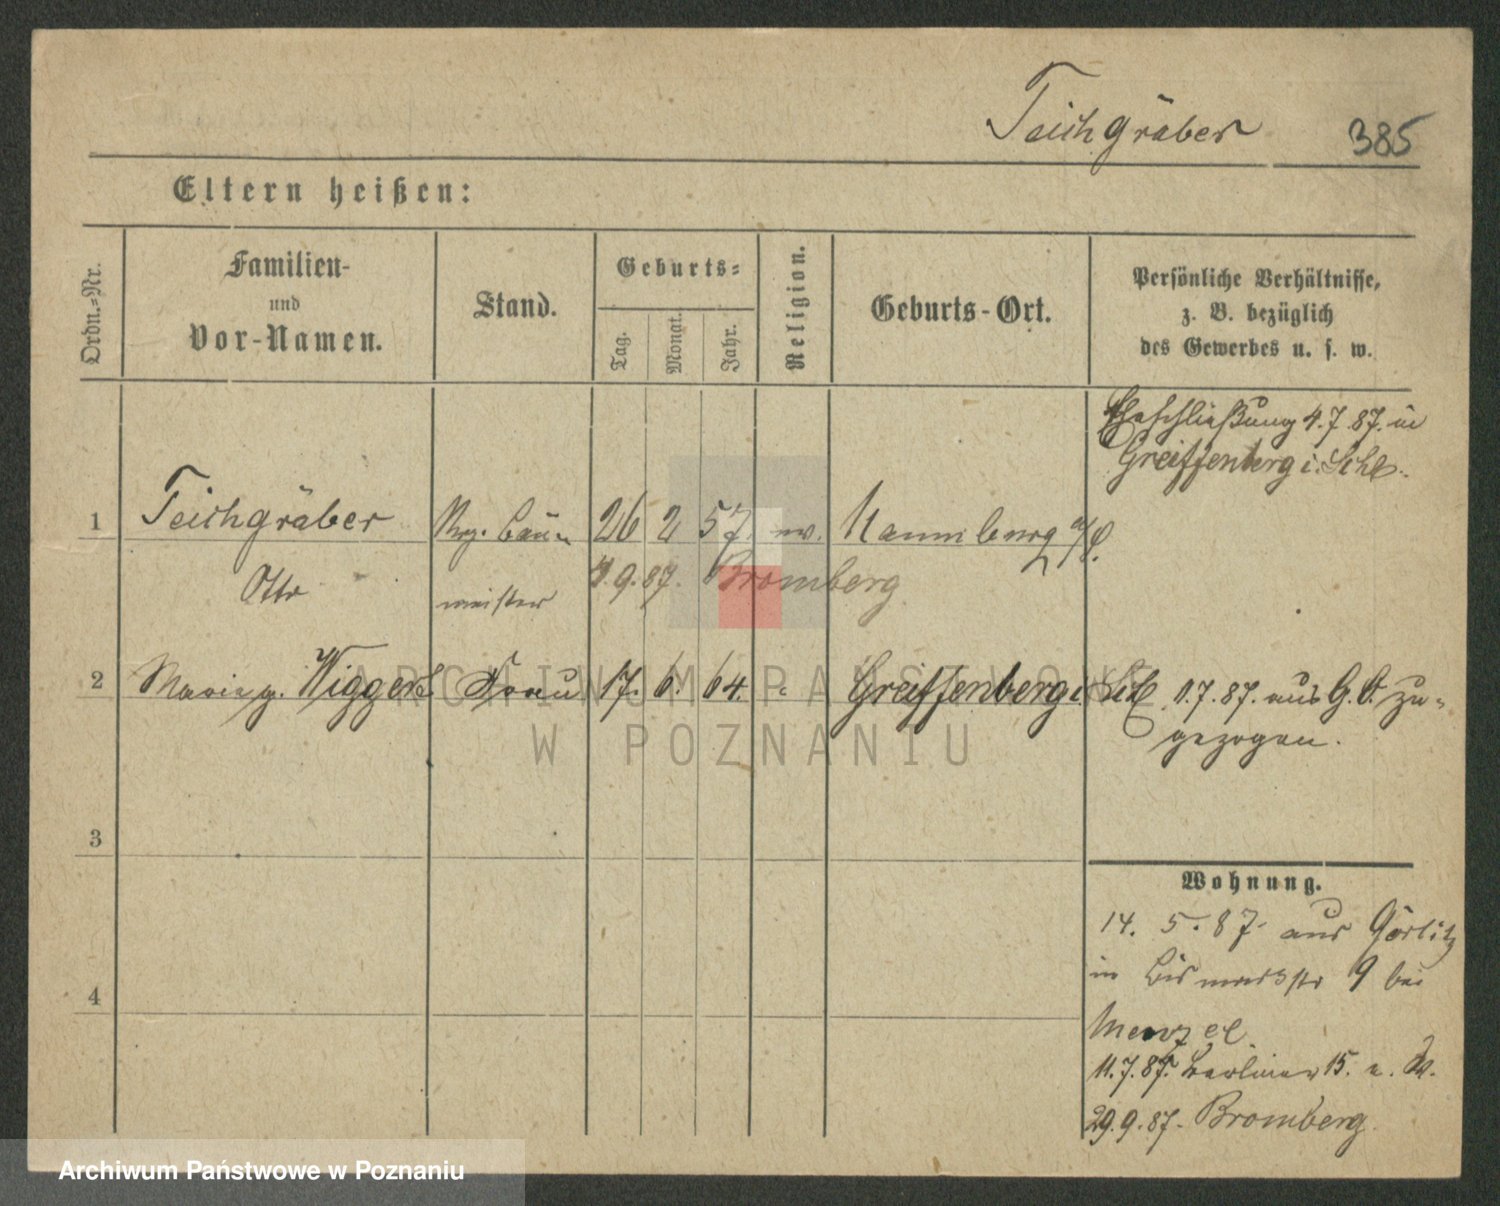 Teichgräber 385
Eltern heißen:
Ordn.-Nr. Familien- und Vor-Namen. Stand. Geburts- Tag. Monat. Jahr. Religion. Geburts-Ort. Persönliche Verhältnisse, z. B. bezüglich des Gewerbes u. s. w.
Eheschließung 4.7.87. in
Greiffenberg i. Schl.
1 Teichgräber Rg. Bau- 26 2 57. ev. Naumburg a/S.
Otto meister 9.87. Bromberg
2 Marie g. Wiggert Frau 17. 6. 64. " Greiffenberg i. Schl. 1.7.87. aus G. O. zu-
gezogen.
3
Wohnung.
14. 5. 87. aus Görlitz
in Bismarckstr 9 bei
4
Menzel
11.7.87. Berliner 15. e. W.
29.9.87. Bromberg.
ARCHIWUM PAŃSTWOWE
W POZNANIU
Archiwum Państwowe w Poznaniu